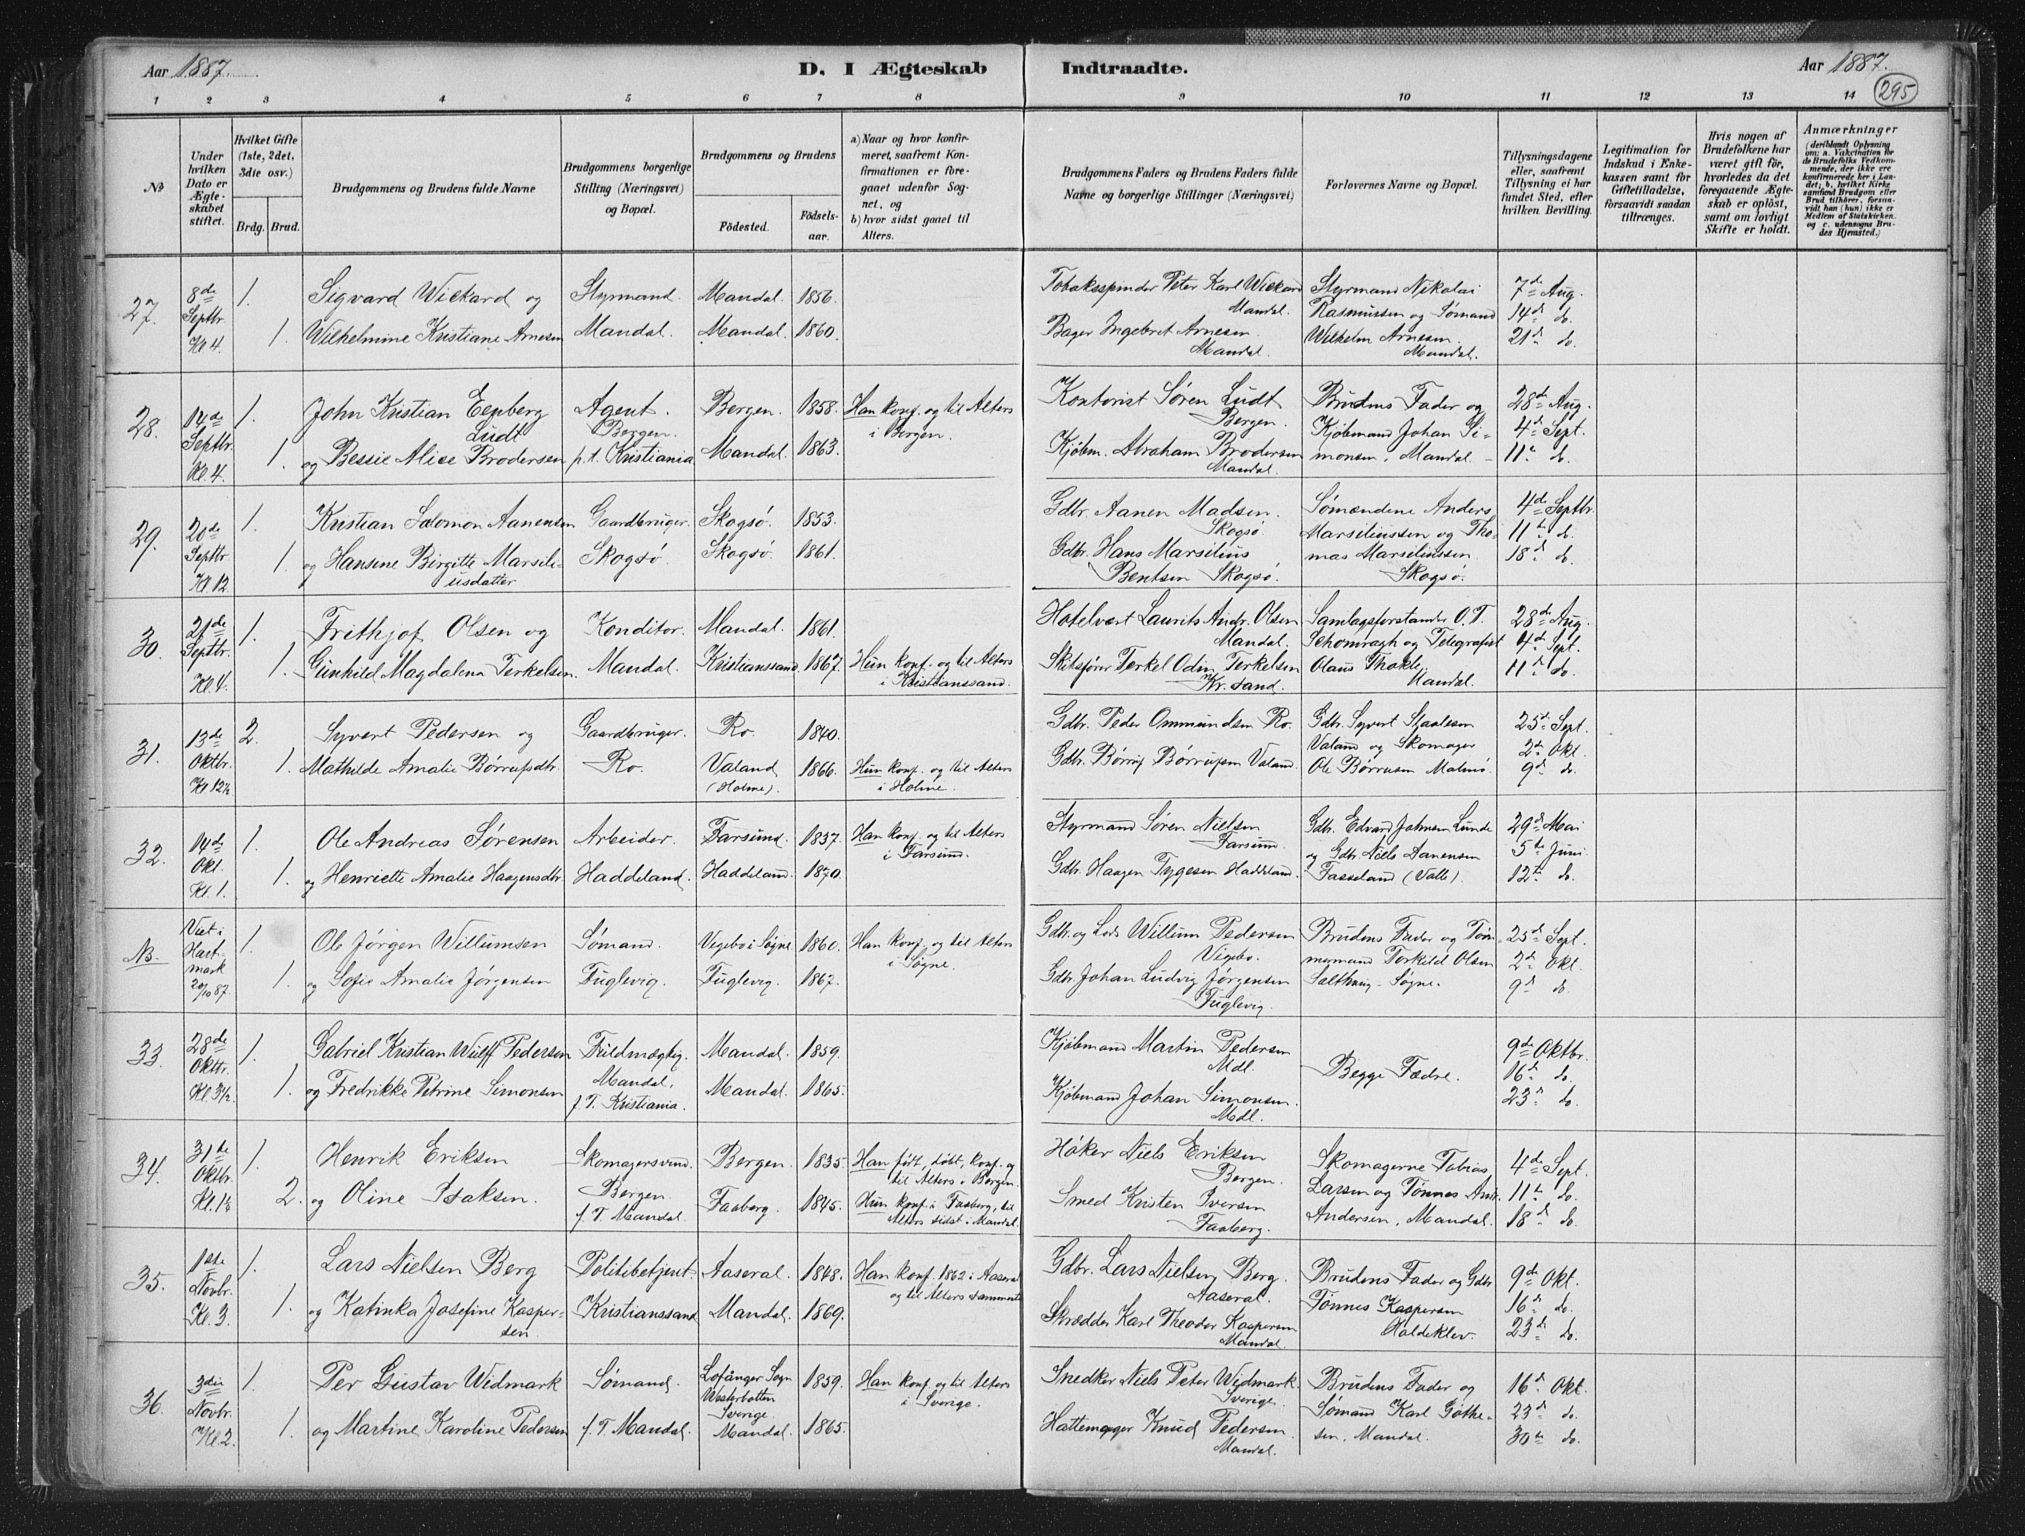 Aar 1887.
D. I Ægteskab Indtraadte.
Aar 1887.
295
1 2 3 4 5 6 7 8 9 10 11 12 13 14
№
Under hvilken Dato er Ægteskabet stiftet.
Hvilket Gifte (1ste, 2det, 3die osv.)
Brdg. Brud.
Brudgommens og Brudens fulde Navne
Brudgommens borgerlige Stilling (Næringsvei) og Bopæl.
Brudgommens og Brudens
Födested.
Födsels-aar.
a) Naar og hvor konfirmeret, saafremt Konfirmationen er foregaaet udenfor Sognet, og
b) hvor sidst gaaet til Alters.
Brudgommens Faders og Brudens Faders fulde Navne og borgerlige Stillinger (Næringsvei)
Forlovernes Navne og Bopæl.
Tillysningsdagene eller, saafremt Tillysning ei har fundet Sted, efter hvilken Bevilling.
Legitimation for Indskud i Enkekassen samt for Giftetilladelse, forsaavidt saadan tiltrænges.
Hvis nogen af Brudefolkene har været gift för, hvorledes da det foregaaende Ægteskab er oplöst, samt om lovligt Skifte er holdt.
Anmærkninger (deriblandt Oplysning om: a. Vakcination for de Brudefolks Vedkommende, der ikke ere konfirmerede her i Landet; b. hvilket Kirkesamfund Brudgom eller Brud tilhörer, forsaavidt han (hun) ikke er Medlem af Statskirken. og c. udensogns Brudes Hjemsted.)
27. 8de Septbr. Kl 4. 1. Sigvard Wickard og Styrmand. Mandal. 1856. Tobaksspinder Peter Karl Wickard Mandal. Styrmand Nikolai 7de Aug.
1. Wilhelmine Kristiane Arnesen Mandal. Mandal. 1860. Bager Ingebret Arnesen Mandal. Rasmussen og Sømand Wilhelm Arnesen. Mandal. 14de do. 21de do.
28. 14de Septbr. Kl. 4. 1. John Kristian Eenberg Ludt Agent. Bergen. Bergen. 1858. Han konf. og til Alters i Bergen. Kontorist Søren Ludt Bergen. Brudens Fader og 28de Aug.
1. og Bessie Alice Brodersen p.t. Kristiania Mandal. 1863. Kjøbm. Abraham Brodersen Mandal. Kjøbmand Johan Simonsen, Mandal. 4de Sept. 11te do.
29. 20de Septbr. Kl 12 1. Kristian Salomon Aanensen Gaardbruger. Skogsø. 1853. Gdbr. Aanen Madsen Skogsø. Sømændene Anders 4de Septbr.
1. og Hansine Birgitte Marseliusdatter Skogsø. Skogsø. 1861. Gdbr. Hans Marselius Bentsen Skogsø. Marseliussen og Thomas Marseliussen. Skogsø. 11te do. 18de do.
30. 21de Septbr. Kl. 4. 1. Frithjof Olsen og Konditor. Mandal. 1861. Hotelvert Laurits Andr. Olsen Mandal. Samlagsforstander O.T. 28de Aug.
1. Gunhild Magdalena Terkelsen. Mandal. Kristianssand 1867. Hun konf. og til Alters i Kristianssand. Skibsfører Terkel Odin Terkelsen Kr.sand. Schomragh og Telegrafist Olaus Mandal. 4de Sept. 11te do.
31. 13de Oktbr. Kl 12½ 2. Syvert Pedersen og Gaardbruger. Ro. 1840. Gdbr. Peder Ommundsen Ro. Gdbr. Syvert Staalesen 25de Sept.
1. Mathilde Amalie Børrufsdtr. Ro. Valand (Holme). 1866. Hun konf. og til Alters i Holme. Gdbr. Børruf Børrufsen Valand. Valand og Skomager Ole Børrusen Malmø. 2den Okt. 9de do.
32. 14de Okt. Kl. 1. 1. Ole Andreas Sørensen Arbeider. Farsund. 1837. Han konf. og til Alters i Farsund. Styrmand Søren Nielsen Farsund. Gdbr. Edvard Johnsen Lunde 29de Mai
1. og Henriette Amalie Haagensdtr. Haddeland. Haddeland. 1870. Gdbr. Haagen Tygesen Haddeland. og Gdbr. Niels Aanensen Fasseland (Valle). 5te Juni. 12te do.
NB. Viet i Hartmark 20/10 87. 1. Ole Jørgen Willumsen Sømand. Vigebo i Søgne 1860. Han konf. og til Alters i Søgne. Gdbr. og Lods Willum Pedersen Vigebo. Brudens Fader og Tøm- 25de Sept.
1. og Sofie Amalie Jørgensen Fuglevig. Fuglevig. 1867. Gdbr. Johan Ludvig Jørgensen Fuglevig. mermand Terkild Olsen Søgne. 2den Okt. 9de do.
33. 28de Oktbr. Kl. 3½ 1. Gabriel Kristian Wulff Pedersen Fuldmægtig. Mandal. 1859. Kjøbmand Martin Pedersen Mdl. Begge Fædre. 9de Oktbr.
1. og Fredrikke Petrine Simonsen Mandal, f.T. Kristiania. Mandal. 1865. Kjøbmand Johan Simonsen. Mdl. 16de do. 23de do.
34. 31te Oktbr. 1. Henrik Eriksen Skomagersvend. Bergen. 1835. Han født, døbt, konf. og til Alters i Bergen. Høker Niels Eriksen Bergen. Skomagerne Tobias 4de Sept.
2. og Oline Isaksen. Bergen. f.T. Mandal. Faaberg. 1845. Hun konf. i Faaberg, til Alters sidst i Mandal. Smed Kristen Iversen Faaberg. Larsen og Tønnes Andr. Andersen, Mandal. 11te do. 18de do.
35. 1ste Novbr. Kl. 3. 1. Lars Nielsen Berg Politibetjent. Aaseral. 1848. Han konf. 1862 i Aaseral og til Alters sammesteds Gdbr. Lars Nielsen Berg. Aaseral. Brudens Fader og Gdbr 9de Okt.
1. og Katinka Josefine Kaspersen Kristianssand Mandal. 1869. Skrædder Karl Theodor Kaspersen Mandal. Tønnes Kaspersen Holdeklev. 16de do. 23de do.
36. 3die Novbr. Kl. 2. 1. Per Gustav Widmark Sømand. Lofånger Sogn Westerbotten Sverige 1859. Han konf. og til Alters i Sverige. Snedker Niels Peter Widmark. Sverige. Brudens Fader og 16de Okt.
1. og Martine Karoline Pedersen f.T. Mandal. Mandal. 1865. Hattemager Knud Pedersen Mandal. Sømand Karl Gøthesen, Mandal. 23de do. 30te do.